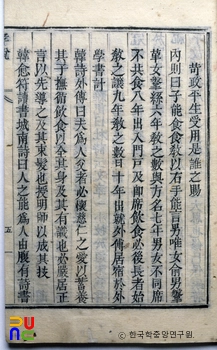 苟政平生受用是誰之賜
內則曰子能食食敎以右手能言男唯女俞男鞶
革女鞶絲六年敎之數與方名七年男女不同席
不共食八年出入門戶及卽席飲食必後長者始
敎之讓九年敎之數日十年出就外傅居宿於外
學書計
韓詩外傳曰夫爲人父者必懷慈仁之愛以畜養
其子撫循飲食以全其身及其有識也必嚴居正
言以先導之及其束髮也授明師以成其技
韓愈符讀書城南詩曰人之能爲人由腹有詩書
五
© 한국학중앙연구원